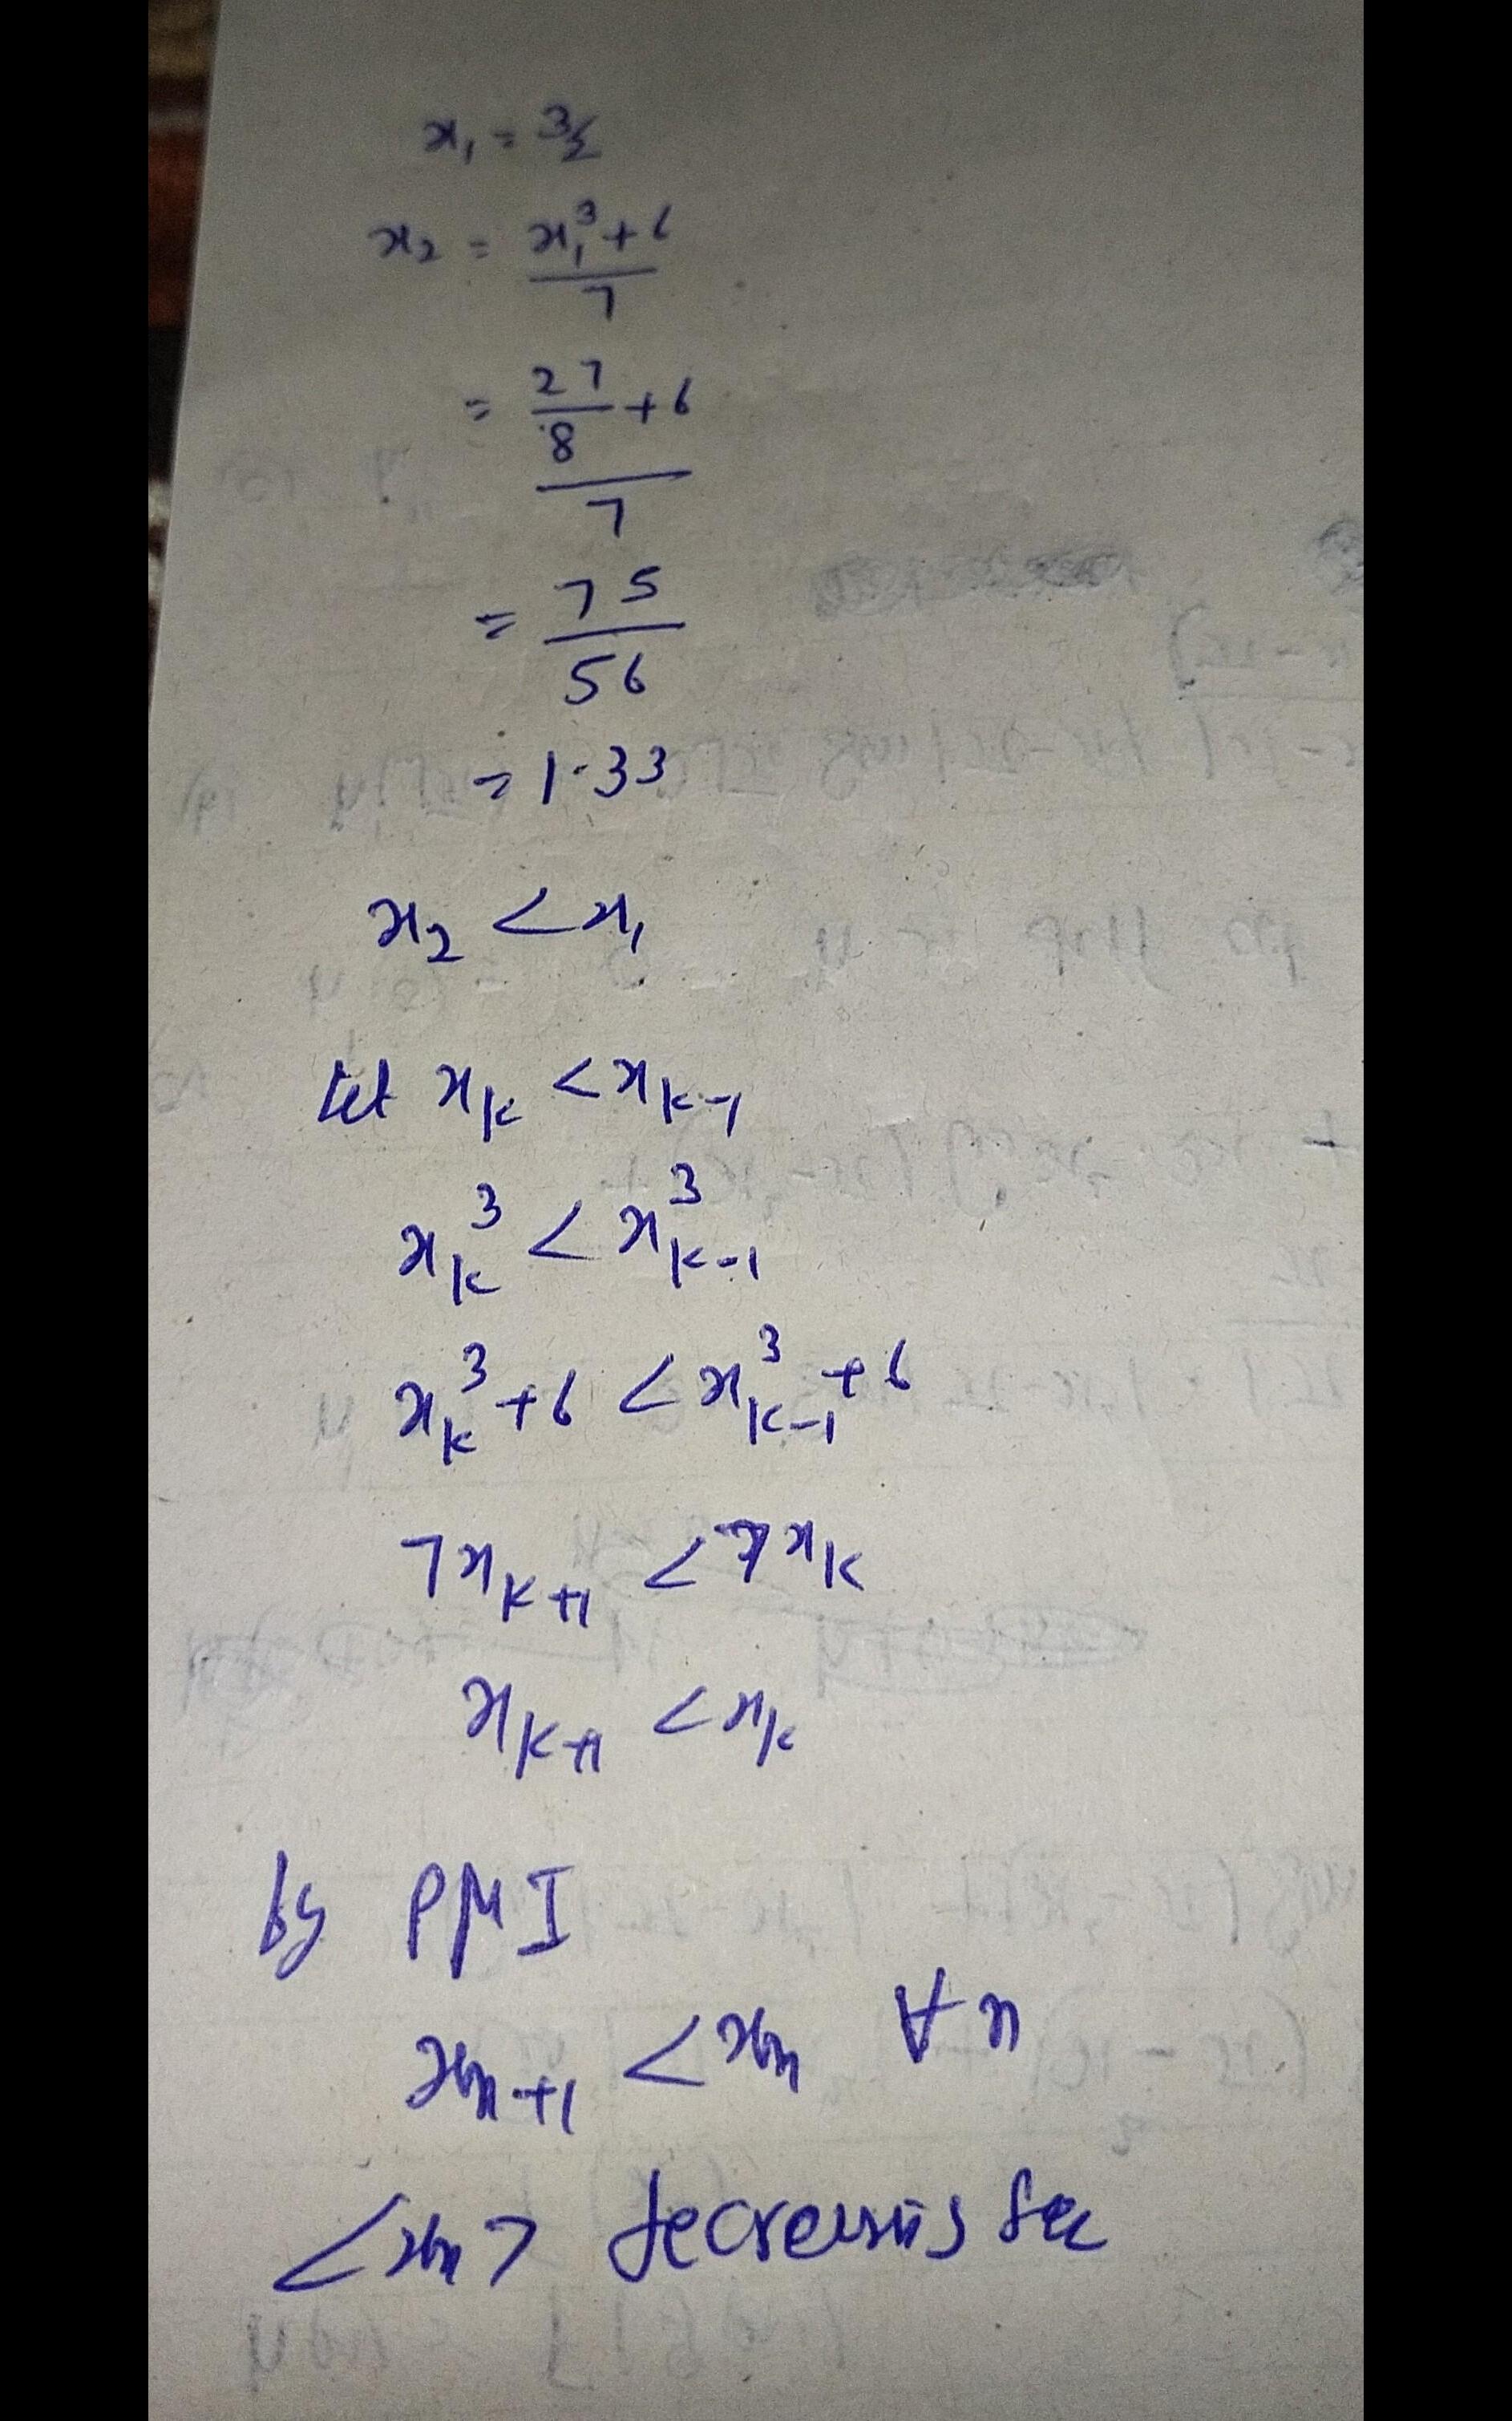 x₁ = 3/2
x₂ = x₁³+6
7
= 27/8 +6
7
= 75
56
= 1.33
x₂ < x₁
let xₖ < xₖ₋₁
xₖ³ < xₖ₋₁³
xₖ³+6 < xₖ₋₁³+6
7xₖ₊₁ < 7xₖ
xₖ₊₁ < xₖ
by PMI
xₙ₊₁ < xₙ ∀ n
<xₙ>